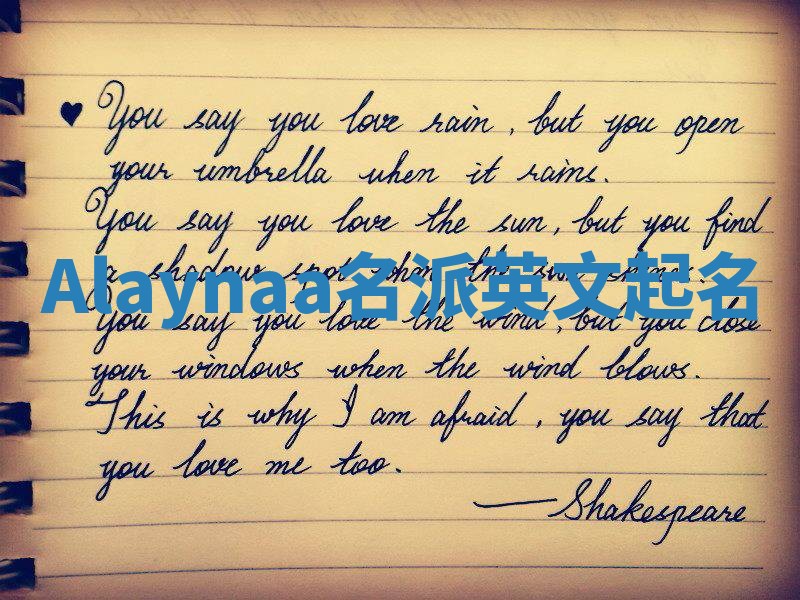 You say you love rain, but you open
your umbrella when it rains.
You say you love the sun, but you find
a shadow spot when the sun shines.
Alaynaa名派英文起名
You say you love the wind, but you close
your windows when the wind blows.
This is why I am afraid, you say that
you love me too.
—Shakespeare